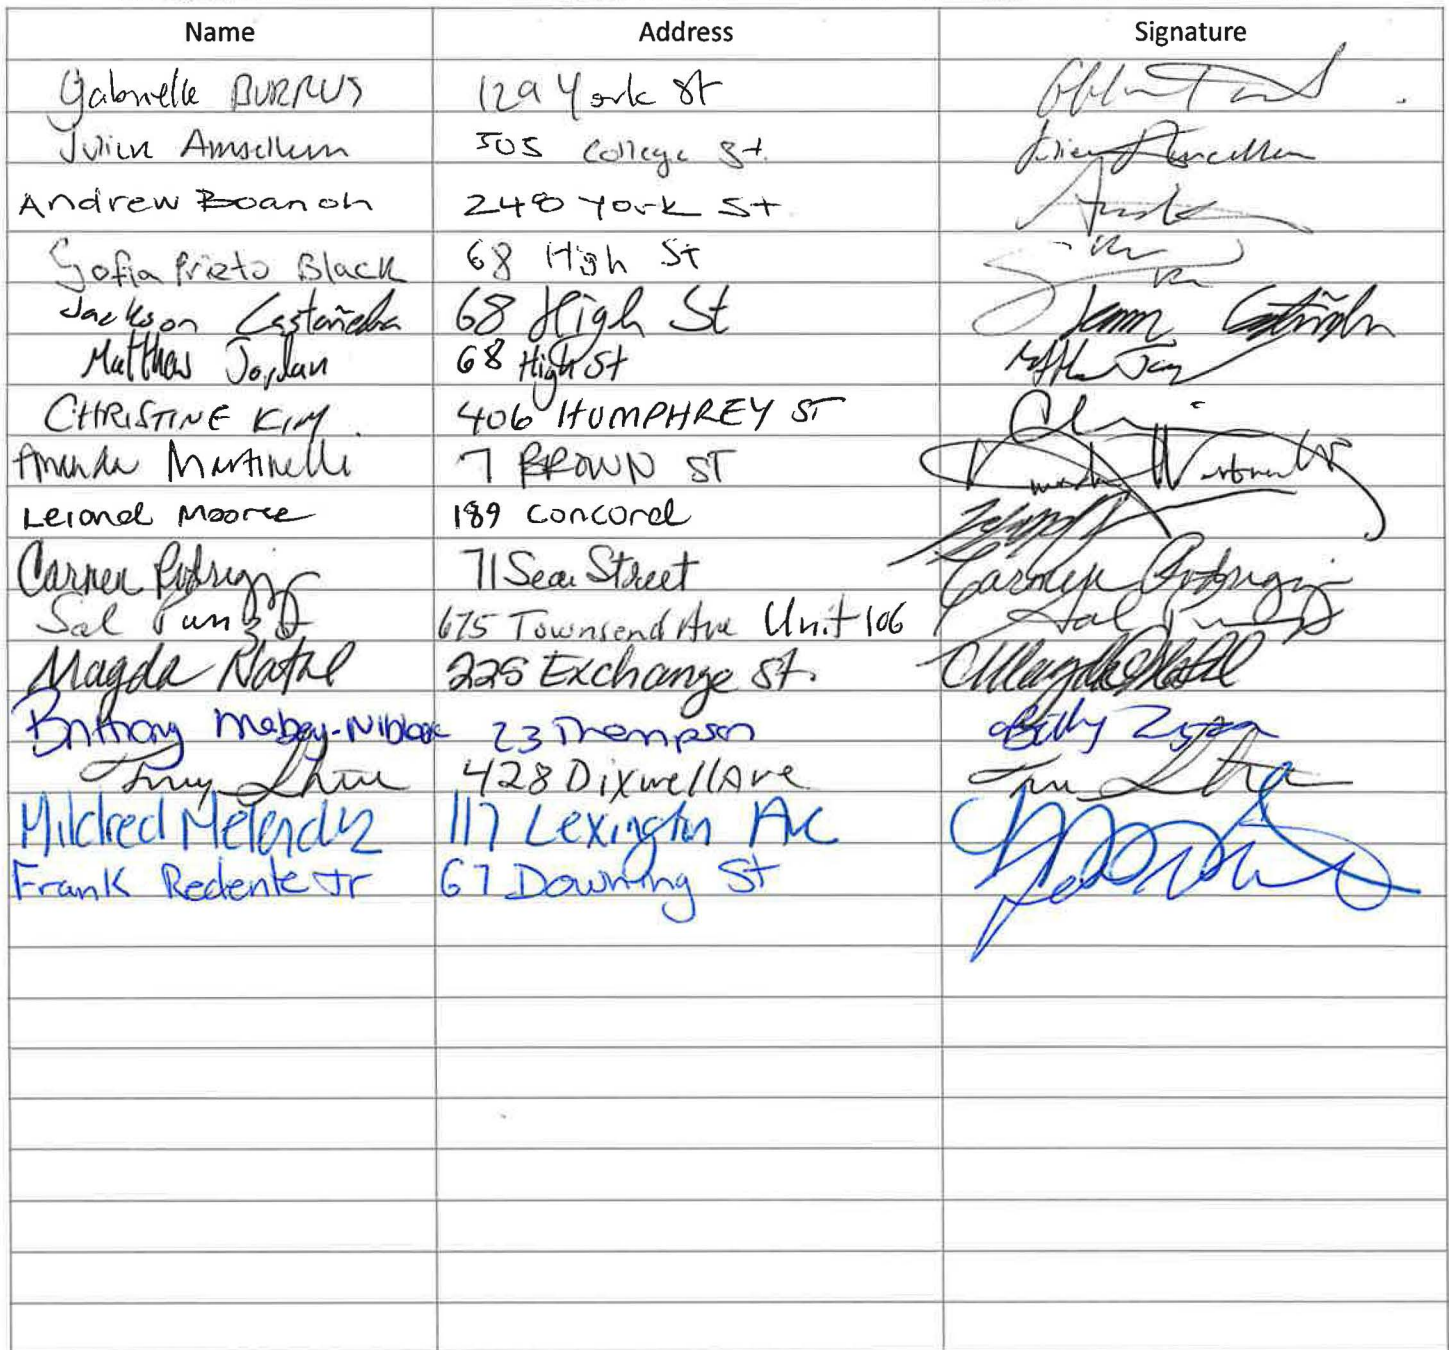 Name Address Signature
Gabrielle BURRUS 129 York St
Julien Amsellem 505 College St. Julien Amsellem
Andrew Boanoh 248 York St
Sofia Prieto Black 68 High St
Jackson Castañeda 68 High St Castañeda
Matthew Jordan 68 High St
CHRISTINE KIM 406 HUMPHREY ST
Amanda Martinelli 7 BROWN ST
Leionel Moore 189 Concord
Carmen Rodriguez 71 Sea Street Carmen Rodriguez
Sal Punzo 675 Townsend Ave Unit 106 Sal Punzo
Magda Natal 225 Exchange St. Magda Natal
Mabey-Niblack 23 Thompson
428 Dixwell Ave
Mildred Melendez 117 Lexington Ave
Frank Redente Jr 67 Downing St